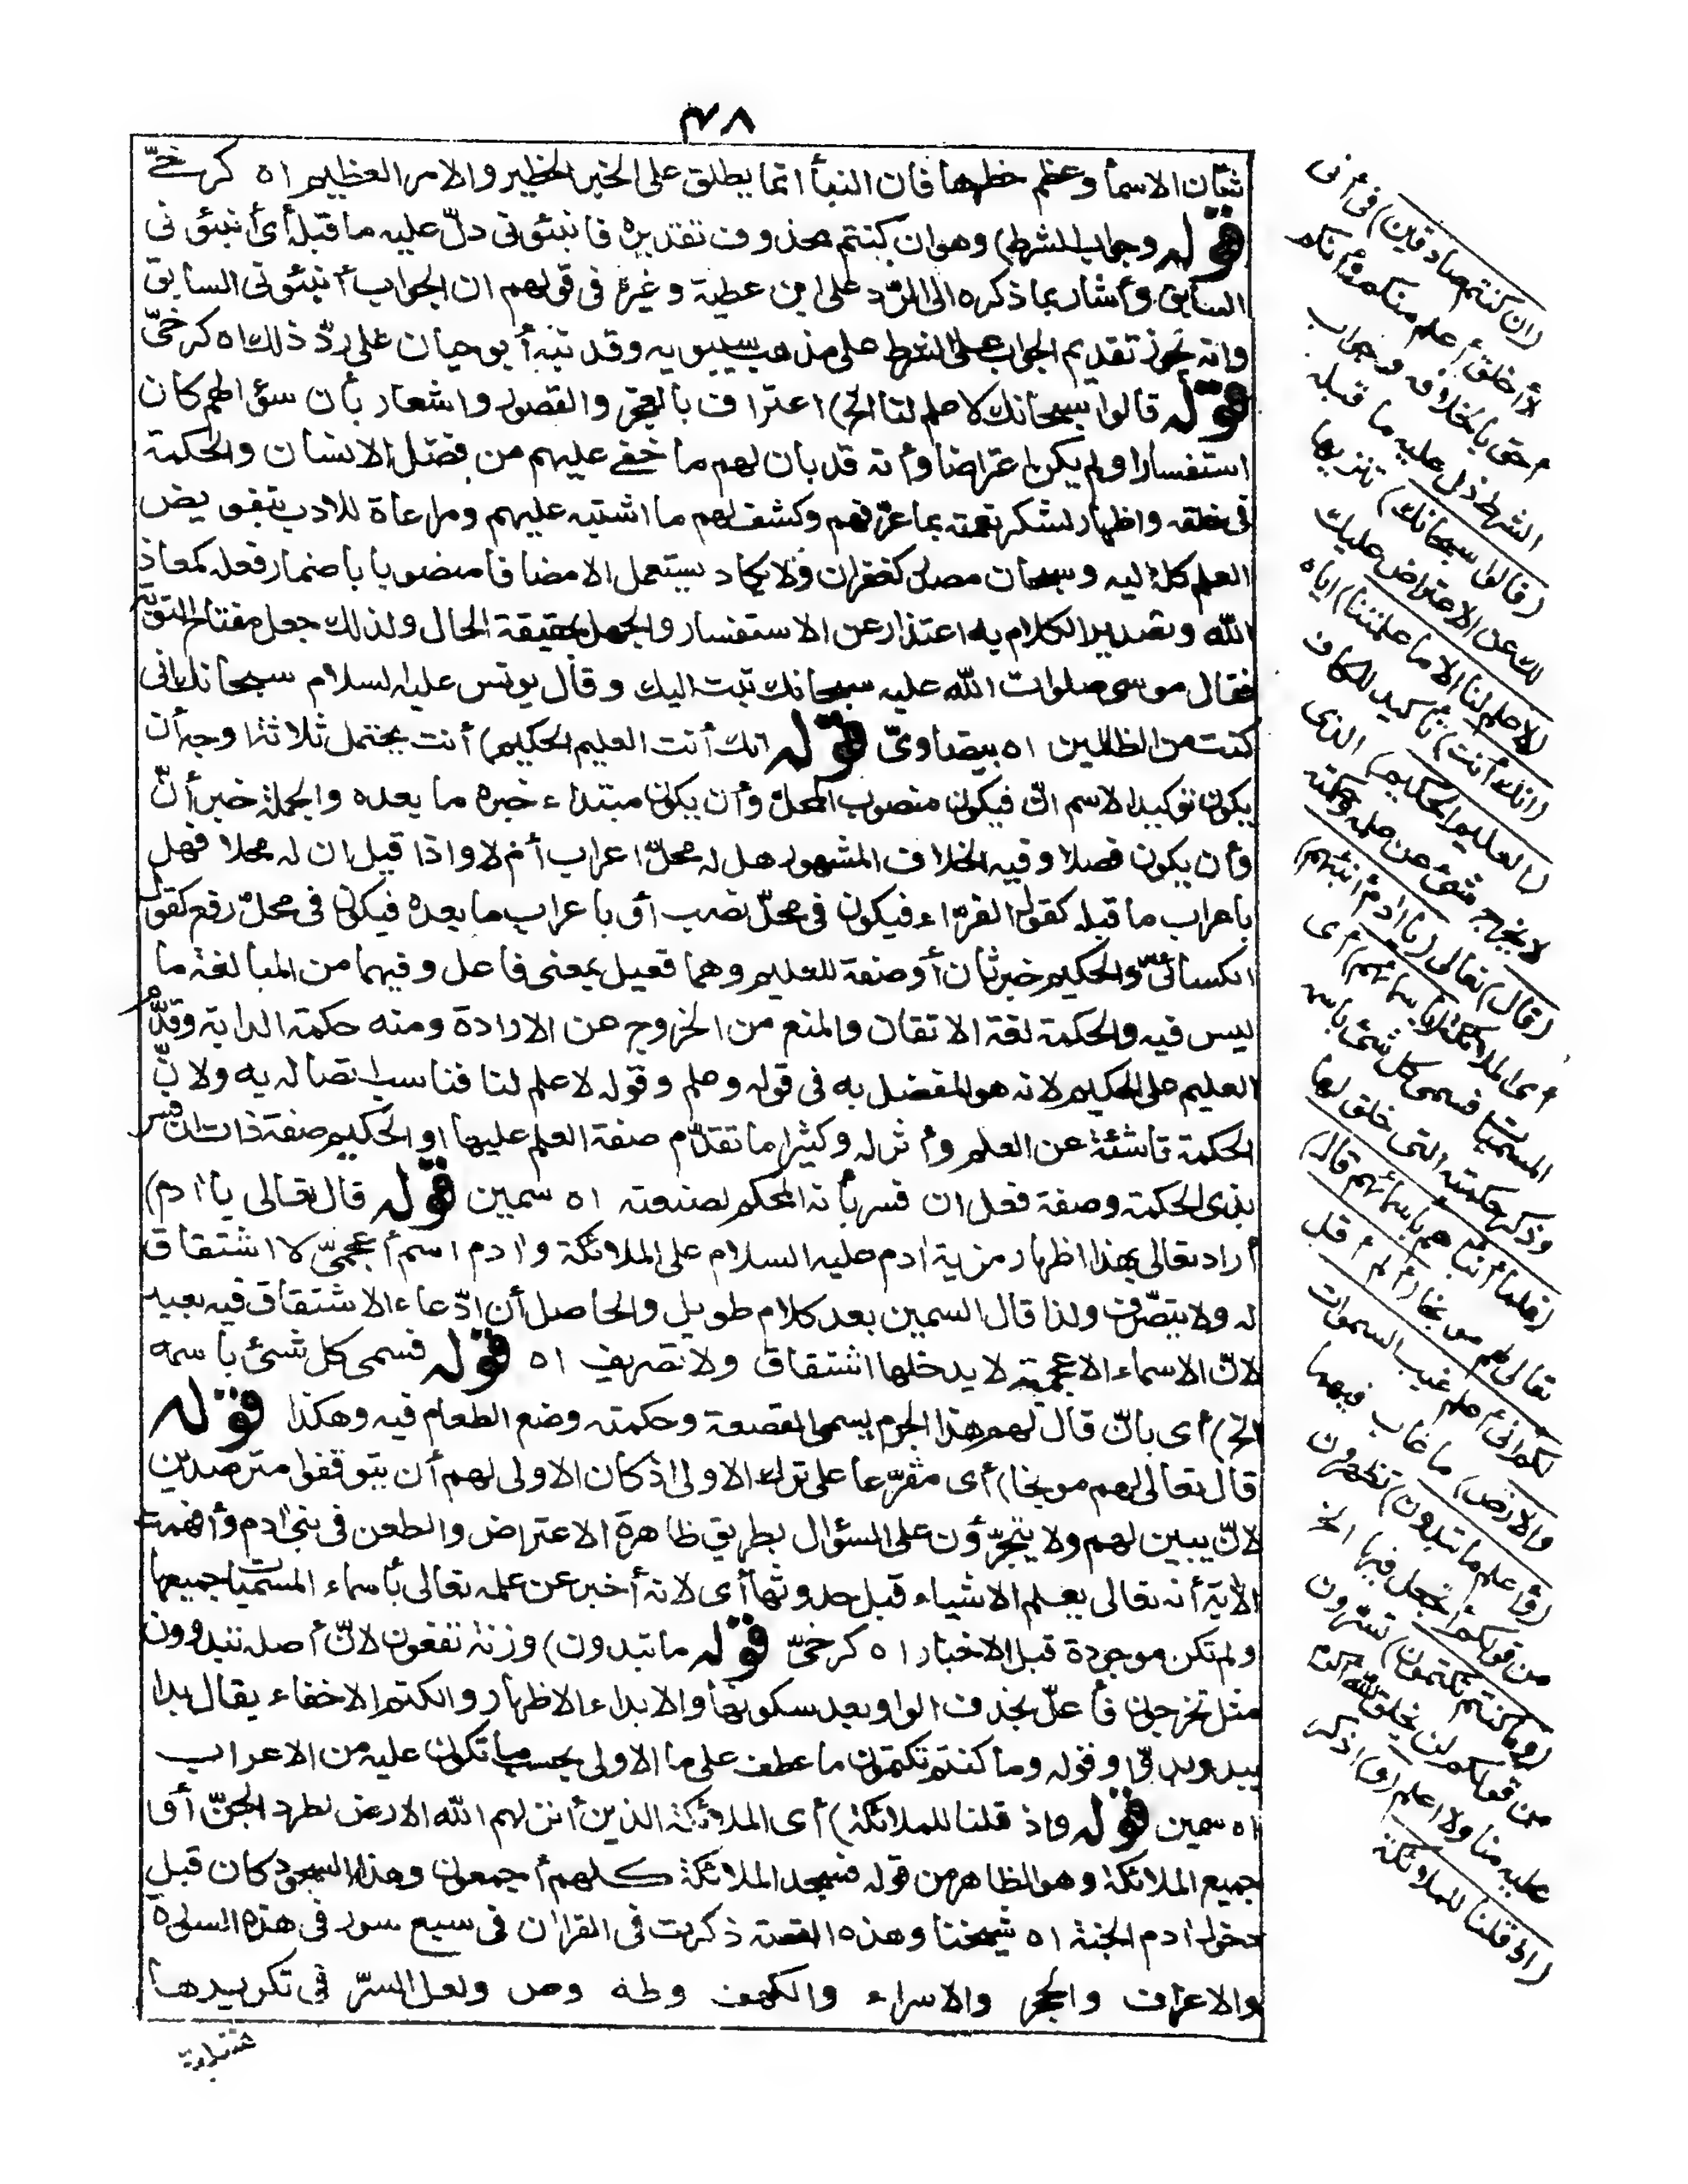 ٣٨
شأن الاسماء وعظم خطرها فان النبأ انما يطلق على الخبر الخطير والامر العظيم اه كرخىّ
قوله وجواب الشرط) وهو ان كنتم محذوف تقديره فانبئونى دلّ عليه ما قبله أى أنبئونى
السابق وأشار بما ذكره الى الردّ على ابن عطية وغيره فى قولهم ان الجواب أنبئونى السابق
وانه يجوز تقديم الجواب على الشرط على مذهب سيبويه وقد نبه أبو حيان على ردّ ذلك اه كرخىّ
قوله قالوا سبحانك لا علم لنا الخ) اعتراف بالعجز والقصور واشعار بأن سؤالهم كان
استفسارا ولم يكن اعتراضا وأنه قد بان لهم ما خفى عليهم من فضل الانسان والحكمة
فى خلقه واظهار لشكر نعمته بما عرّفهم وكشف لهم ما اشتبه عليهم ومراعاة للادب بتفويض
العلم كله اليه وسبحان مصدر كغفران ولا يكاد يستعمل الا مضافا منصوبا باضمار فعله كمعاذ
الله وتصدير الكلام به اعتذار عن الاستفسار والجهل بحقيقة الحال ولذلك جعل مفتاح التوبة
فقال موسى صلوات الله عليه سبحانك تبت اليك وقال يونس عليه السلام سبحانك انى
كنت من الظالمين اه بيضاوىّ قوله انك أنت العليم الحكيم) أنت يحتمل ثلاثة اوجه أن
يكون توكيدا لاسم انّ فيكون منصوب المحل وأن يكون مبتداء خبره ما بعده والجملة خبر أنّ
وأن يكون فصلا وفيه الخلاف المشهور هل له محلّ اعراب أم لا واذا قيل ان له محلا فهل
باعراب ما قبله كقول الفرّاء فيكون فى محلّ نصب أو باعراب ما بعده فيكون فى محلّ رفع كقول
الكسائىّ والحكيم خبر ثان أو صفة للعليم وهما فعيل بمعنى فاعل وفيهما من المبالغة ما
ليس فيه والحكمة لغة الاتقان والمنع من الخروج عن الارادة ومنه حكمة الدابة وقدّم
العليم على الحكيم لانه هو المفضل به فى قوله وعلم وقوله لا علم لنا فناسب اتصاله به ولانّ
الحكمة ناشئة عن العلم وأثر له وكثيرا ما تقدّم صفة العلم عليها او الحكيم صفة ذات ان فسر
بذى الحكمة وصفة فعل ان فسر بأنه المحكم لصنعته اه سمين قوله قال تعالى يا ادم)
أراد تعالى بهذا اظهار مزية ادم عليه السلام على الملائكة وادم اسم أعجمىّ لا اشتقاق
له ولا يتصرّف ولذا قال السمين بعد كلام طويل والحاصل أن ادّعاء الاشتقاق فيه بعيد
لانّ الاسماء الاعجمية لا يدخلها اشتقاق ولا تصريف اه قوله فسمى كل شئ باسمه
الخ) أى بانّ قال لهم هذا الجرم يسمى القصعة وحكمته وضع الطعام فيه وهكذا قوله
قال تعالى لهم موبخا) أى مفرّعا على ترك الاولى اذ كان الاولى لهم أن يتوقفوا مترصدين
لانّ يبين لهم ولا يتجرّؤن على السؤال بطريق ظاهرة الاعتراض والطعن فى بنى ادم وأفهمت
الآية أنه تعالى يعلم الاشياء قبل حدوثها أى لانه أخبر عن علمه تعالى بأسماء المسميات جميعها
ولم تكن موجودة قبل الاخبار اه كرخىّ قوله ما تبدون) وزنة تفعون لانّ أصله تبدوون
مثل تخرجون فأعلّ بحذف الواو بعد سكونها والابداء الاظهار والكتم الاخفاء يقال بدا
يبدو بدوّا وقوله وما كنتم تكتمون ما عطف على ما الاولى بحسب ما تكون عليه من الاعراب
اه سمين قوله واذ قلنا للملائكة) أى الملائكة الذين أنزلهم الله الارض لطرد الجنّ أو
جميع الملائكة وهو الظاهر من قوله فسجد الملائكة كلهم أجمعون وهذا السجود كان قبل
دخول ادم الجنة اه شيخنا وهذه القصة ذكرت فى القران فى سبع سور فى هذه السورة
والاعراف والحجر والاسراء والكهف وطه وص ولعل السرّ فى تكريرها
(ان كنتم صادقين) فى أنى
لا أخلق أعلم منكم وأنكم
أحق بالخلافة وجواب
الشرط دل عليه ما قبله
(قالوا سبحانك) تنزيها
لك عن الاعتراض عليك
(لا علم لنا الا ما علمتنا) اياه
(انك أنت) تأكيد للكاف
(العليم الحكيم) الذى
لا يخرج شئ عن علمه وحكمته
(قال) تعالى (يا ادم أنبئهم)
أى الملائكة (باسمائهم) أى
المسميات فسمى كل شئ باسمه
وذكر حكمته التى خلق لها
(فلما أنبأهم باسمائهم قال)
تعالى لهم موبخا (ألم أقل
لكم انى أعلم غيب السموات
والارض) ما غاب فيهما
(وأعلم ما تبدون) تظهرون
من قولكم أتجعل فيها الخ
(وما كنتم تكتمون) تسرّون
من قولكم لن يخلق الله اكرم
عليه منا ولا اعلم (و) اذكر
(اذ قلنا للملائكة